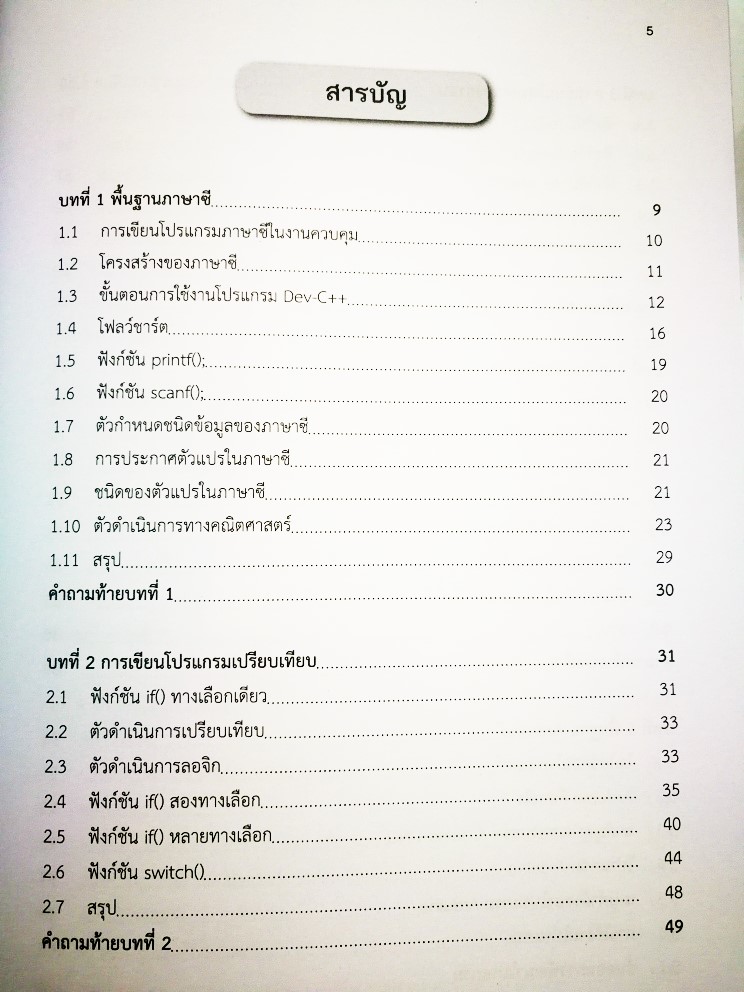 5
สารบัญ
บทที่ 1 พื้นฐานภาษาซี 9
1.1 การเขียนโปรแกรมภาษาซีในงานควบคุม 10
1.2 โครงสร้างของภาษาซี 11
1.3 ขั้นตอนการใช้งานโปรแกรม Dev-C++ 12
1.4 โฟลว์ชาร์ต 16
1.5 ฟังก์ชัน printf(); 19
1.6 ฟังก์ชัน scanf(); 20
1.7 ตัวกำหนดชนิดข้อมูลของภาษาซี 20
1.8 การประกาศตัวแปรในภาษาซี 21
1.9 ชนิดของตัวแปรในภาษาซี 21
1.10 ตัวดำเนินการทางคณิตศาสตร์ 23
1.11 สรุป 29
คำถามท้ายบทที่ 1 30
บทที่ 2 การเขียนโปรแกรมเปรียบเทียบ 31
2.1 ฟังก์ชัน if() ทางเลือกเดียว 31
2.2 ตัวดำเนินการเปรียบเทียบ 33
2.3 ตัวดำเนินการลอจิก 33
2.4 ฟังก์ชัน if() สองทางเลือก 35
2.5 ฟังก์ชัน if() หลายทางเลือก 40
2.6 ฟังก์ชัน switch() 44
2.7 สรุป 48
คำถามท้ายบทที่ 2 49